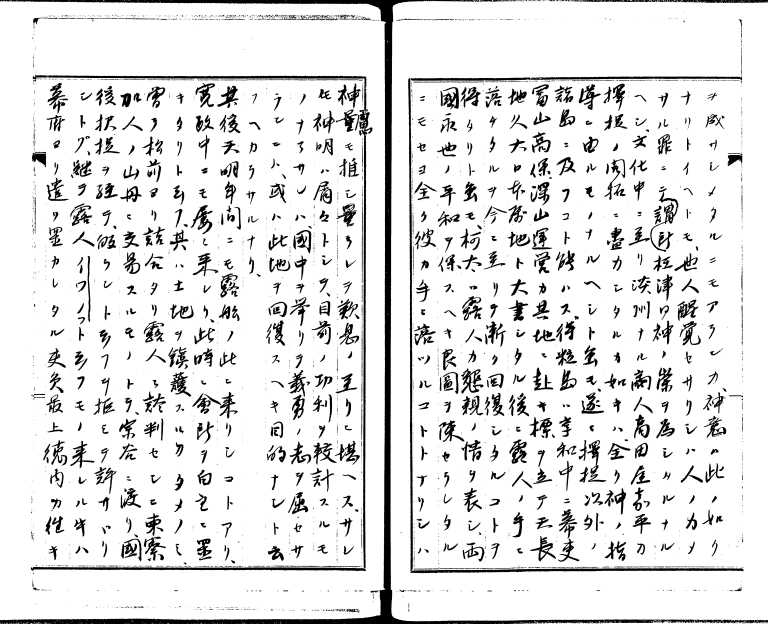 ヲ感サシメタルニモアランカ神意ハ此ノ如リ
ナリトイヘトモ也人醒覚セサリシハ人ノカメ
サル罪ニテ謂計柱津日神ノ祟ヲ為シルナル
ヘシ文化中ニ至リ淡州ナル商人高田屋嘉平カ
擇捉ノ開拓ニ盡力シタルカ如キハ全ク神ノ指
導ニ由ルモノナルヘシト雖モ遂ニ擇捉以外ノ
諸島ニ及フコト能ハス得粒島ハ享和中ニ幕吏
冨山高保深山運営カ其地ニ赴キ標ヲ立テ天長
地久大日本属地ト大書シタル後ニ露人ノ手ニ
落タルヲ今ニ至リヲ漸ク回復シタルコトヲ
得タリト雖モ柯太ハ露人カ懇親ノ情ヲ表シ両
國永世ノ平和ヲ保スヘキ良圖ヲ陳セラレタル
ニモセヨ全ク彼カ手ニ落ツルコトトナリシハ
神慮モ推シ量ラレテ歎息ノ至リニ堪ヘスサレ
ヒ神明ハ屑々トシテ目前ノ功利ヲ較計スルモ
ノナラサレハ國中ヲ挙リテ義勇ノ志ヲ屈セサ
ランニハ或ハ此地ヲ回復スヘキ目的ナシト云
フヘカラサルナリ
其後天明年間ニモ露船ノ此ニ来リシコトアリ
寛政中ニモ屡々来レリ此時ニ會所ヲ白主ニ置
キタリト云フ其ハ土地ヲ鎮護スルカタメノミ
ヲ松前ヨリ詰合タリ露人ヲ談判セシニ東察
加人ノ山丹ニ交易スルモノトテ宗谷ニ渡リ國
後択捉ヲ経テ皈ラント云フヲ拒ミテ許サリ
シトソ継テ露人イワノフト云フモノ来レル年ハ
幕府ヨリ遣リ置カレタル吏員最上徳内カ往キ